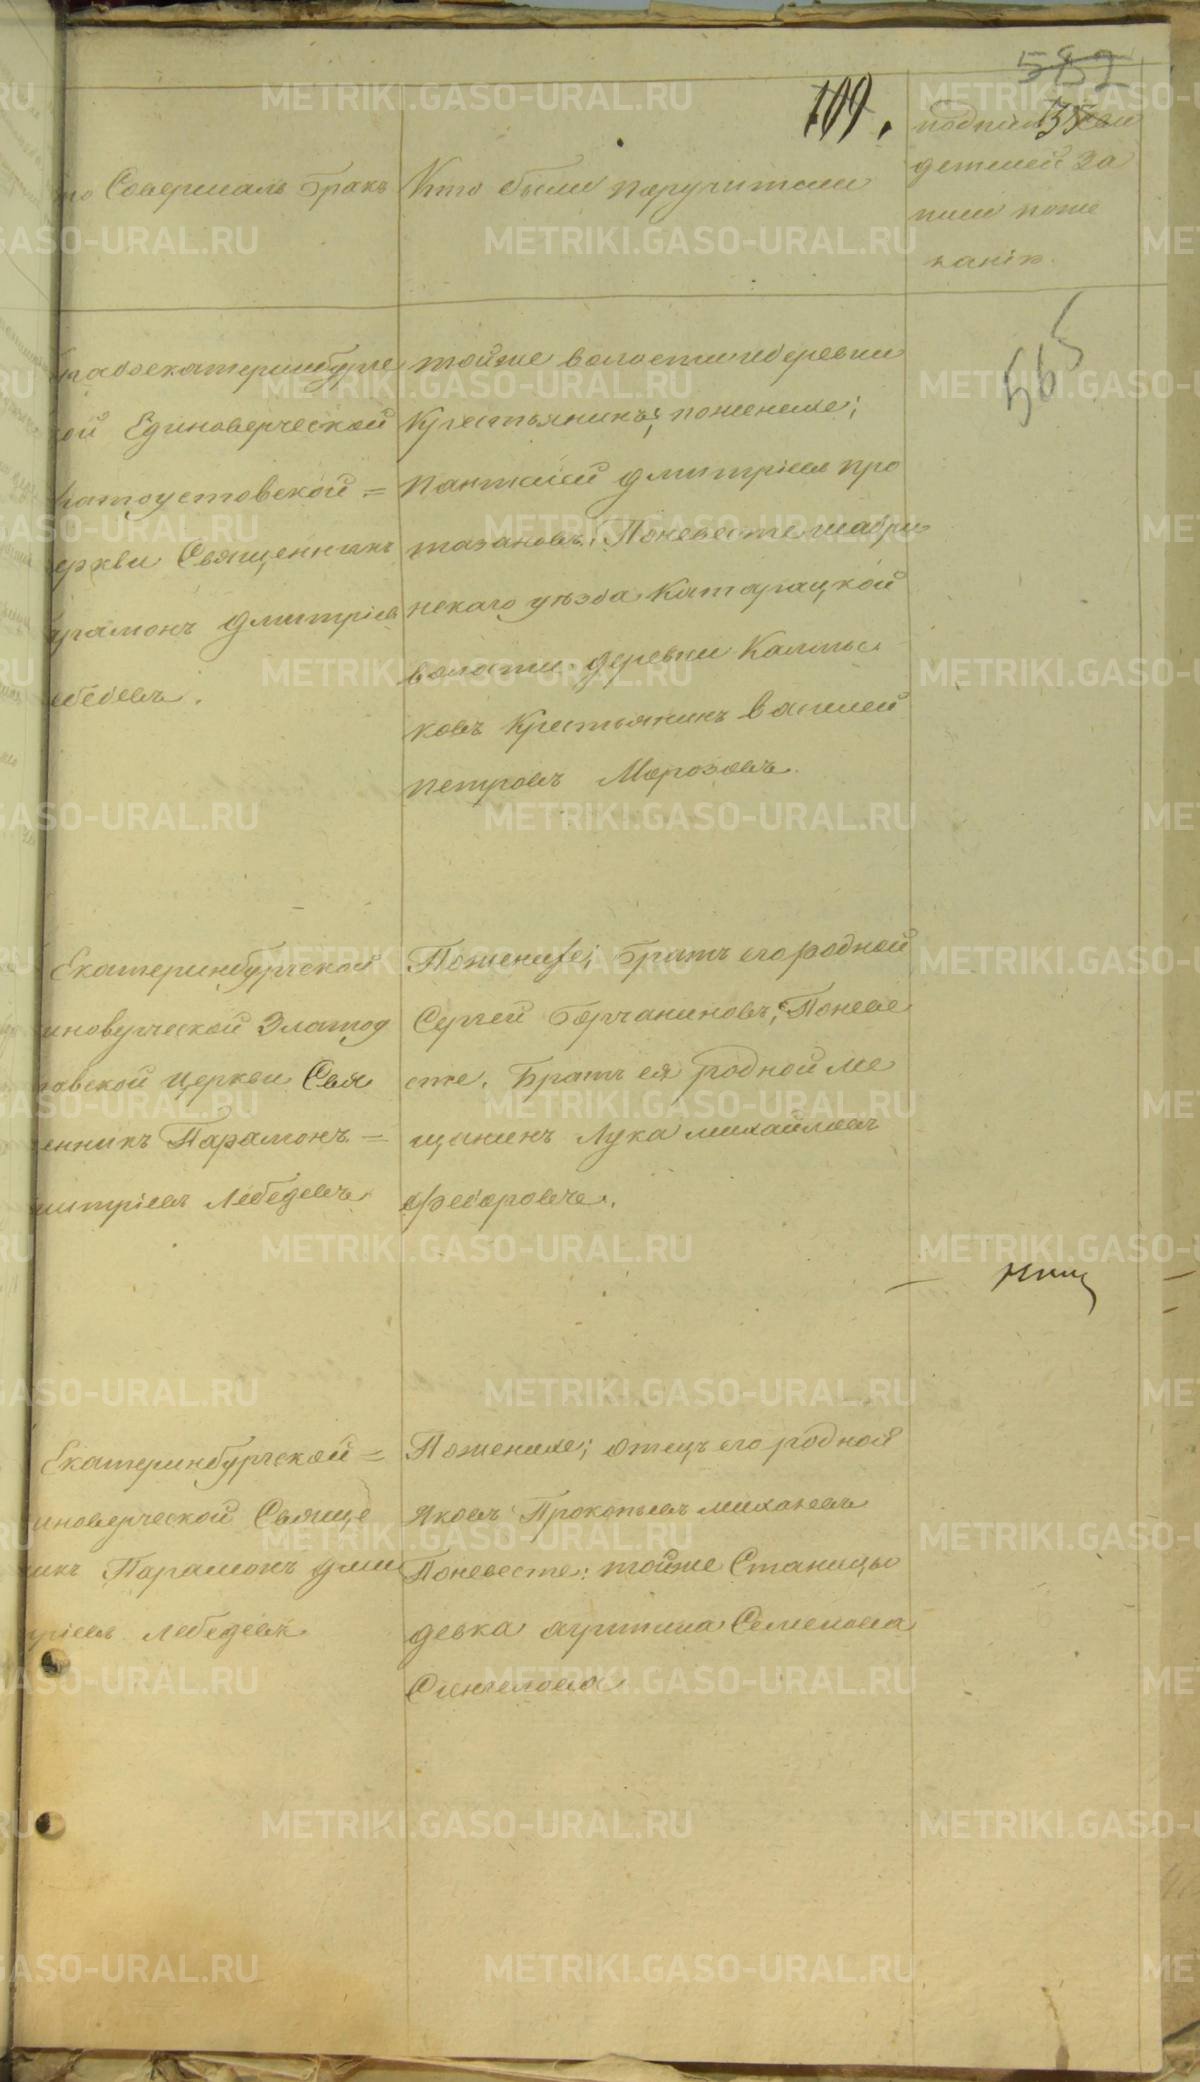 582
109.
135
то Совершалъ Бракъ
Кто были поручители
подпись сви
детелей За
писи поже
ланію.
565
Градоекатеринбургс
кой Единоверческой
латоустовской =
еркви Священникъ
арамонъ Дмитріев
ебедевъ.
тойже волости и деревни
Крестьянинъ; поженихе;
Пантилей Дмитріев про
тазановъ. Поневесте шадри
нскаго уезда Катарацкой
волости деревни Калмы
ковъ Крестьянинъ Василей
петровъ Морозовъ.
Екатеринбургской
иноверческой Златоу
товской церкви Свя
енникъ Парамонъ =
митріевъ Лебедевъ
Поженихе; Братъ его родной
Сергей Борчаниновъ; Поневе
сте. Братъ ея родной ме
щанинъ Лука михайловъ
Федоровъ.
Екатеринбургской =
иноверческой Свяще
икъ Парамонъ Дми
тріевъ Лебедевъ
Поженихе; отецъ его родной
Яковъ Прокопьевъ михалевъ
Поневесте: тойже Станицы
девка Семенова
METRIKI.GASO-URAL.RU